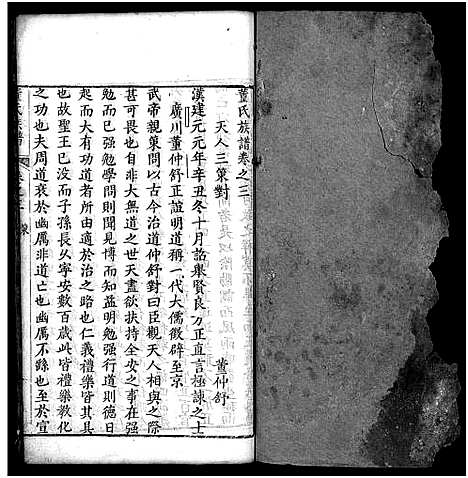 董氏族譜卷之三
天人三策對
董仲舒
漢建元元年辛丑冬十月詔舉賢良方正直言極諫之士
廣川董仲舒正誼明道稱一代大儒徵辟至京
武帝親策問以古今治道仲舒對曰臣觀天人相與之際
甚可畏也自非大無道之世天盡欲扶持全安之事在强
勉而已强勉學問則聞見博而知益明勉强行道則德日
起而大有功道者所由適於治之路也仁義禮樂皆其具
也故聖王已沒而子孫長久寧安數百歲此皆禮樂教化
之功也夫周道衰於幽厲非道亡也幽厲不繇也至於宣